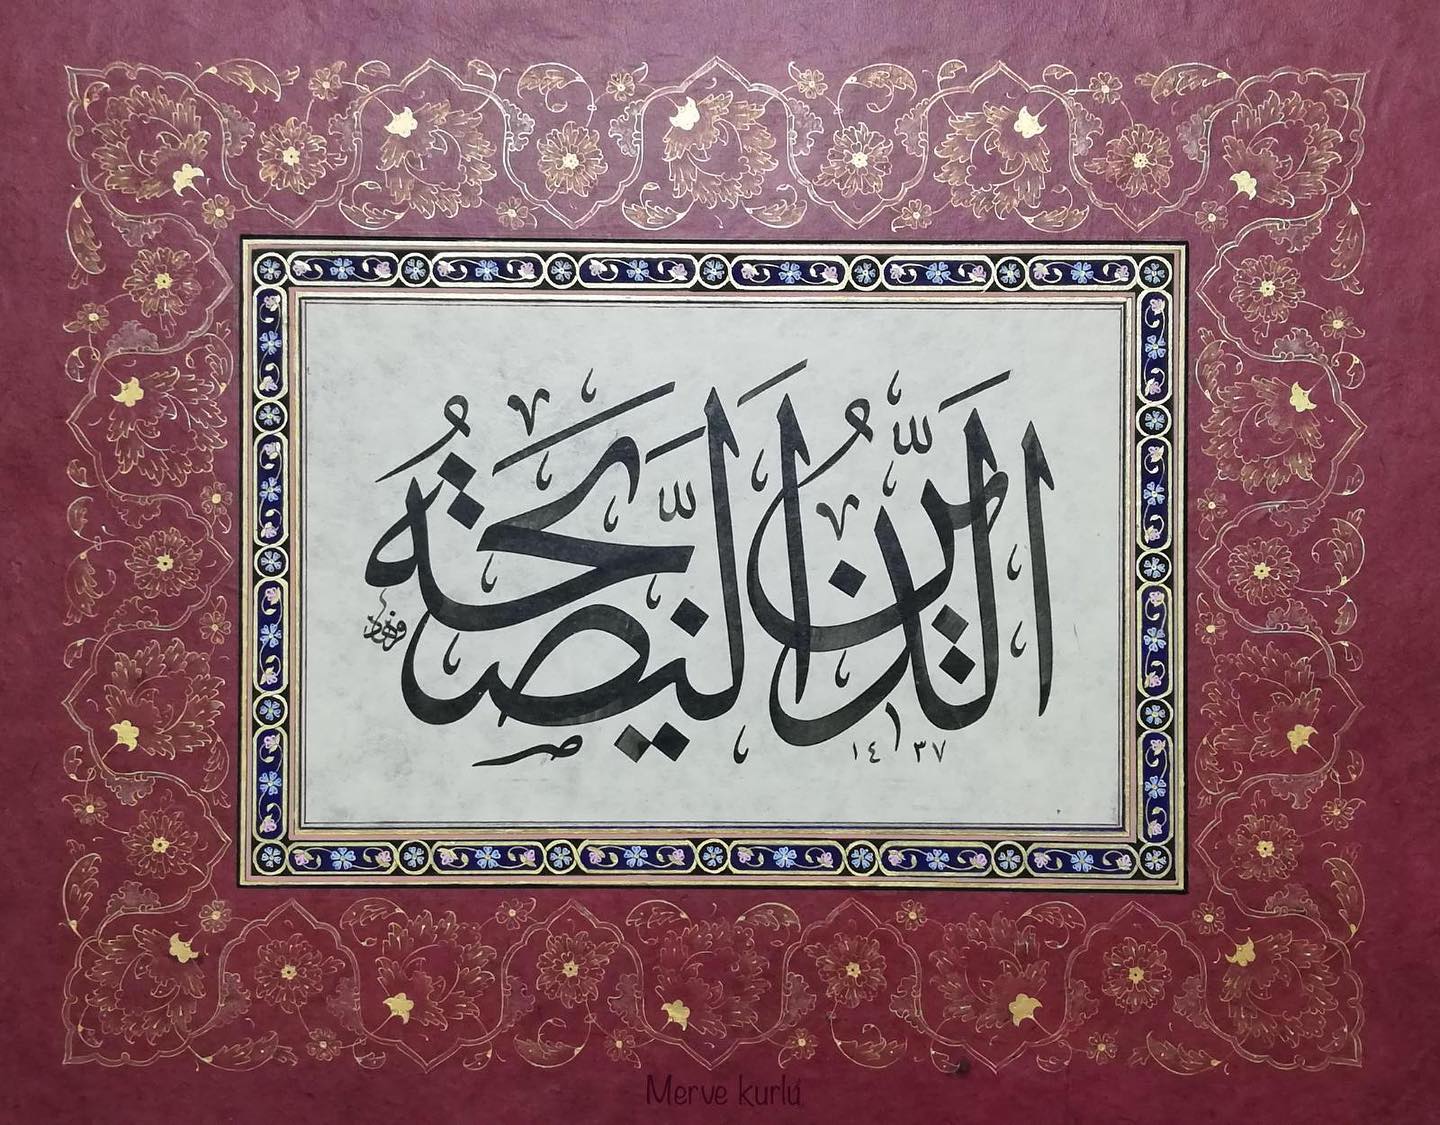 الدِّينُ النَّصِيحَةُ
فرهاد
١٤٣٧
Merve kurlu